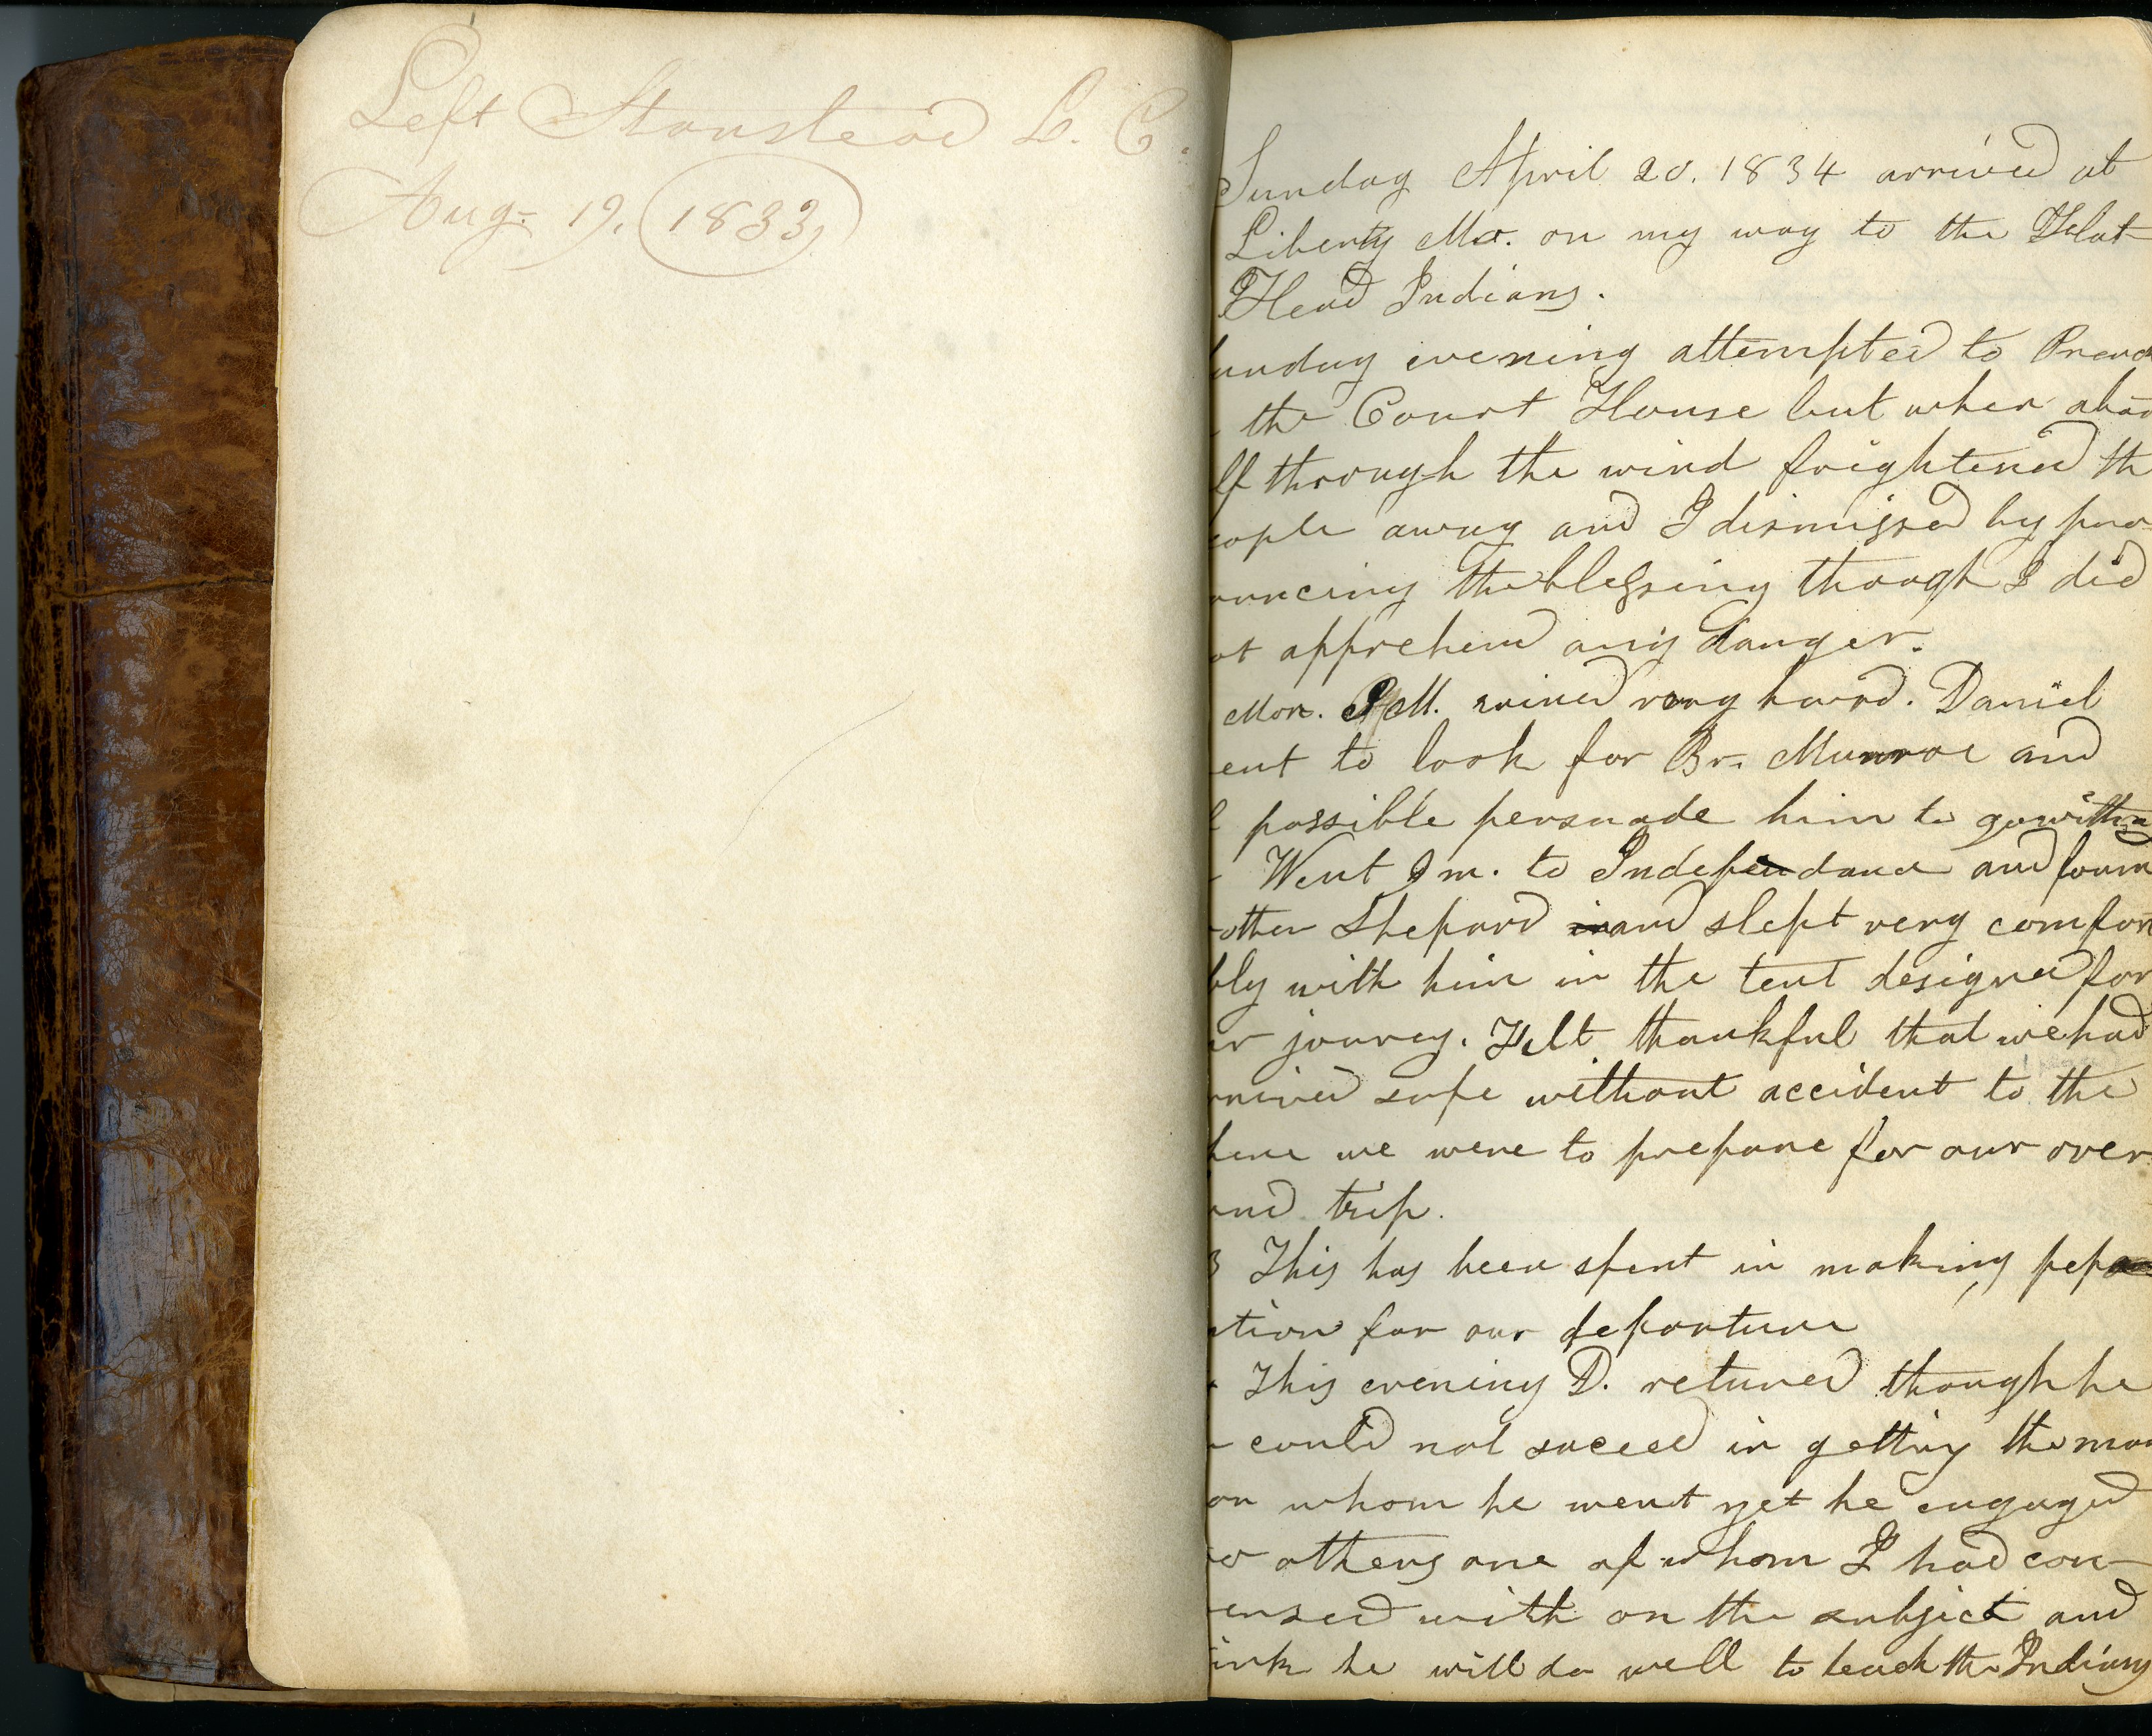 Left Stanstead L. C.
Aug. 19. 1833
Sunday April 20. 1834 arrived at
Liberty Mo. on my way to the Flat
Head Indians.
unday evening attempted to Preac
the Court House but when abou
lf through the wind frightened th
eople away and I dismissed by pro
ouncing the blessing though I did
ot apprehend any danger.
Mon. P.M. rained very hard. Daniel
ent to look for Br. Munroe and
f possible persuade him to go with u
Went to Independance and foun
other Shepard and slept very comfor
bly with him in the tent designed for
ur journey. Felt thankful that we had
rrived safe without accident to the
here we were to prepare for our over
and trip.
3 This has been spent in making pepa
ation for our departure
This evening D. returned though he
could not suceed in getting the man
or whom he went yet he engaged
wo others one of whom I had con-
ersed with on the subject and
ink he will do well to teach the Indians